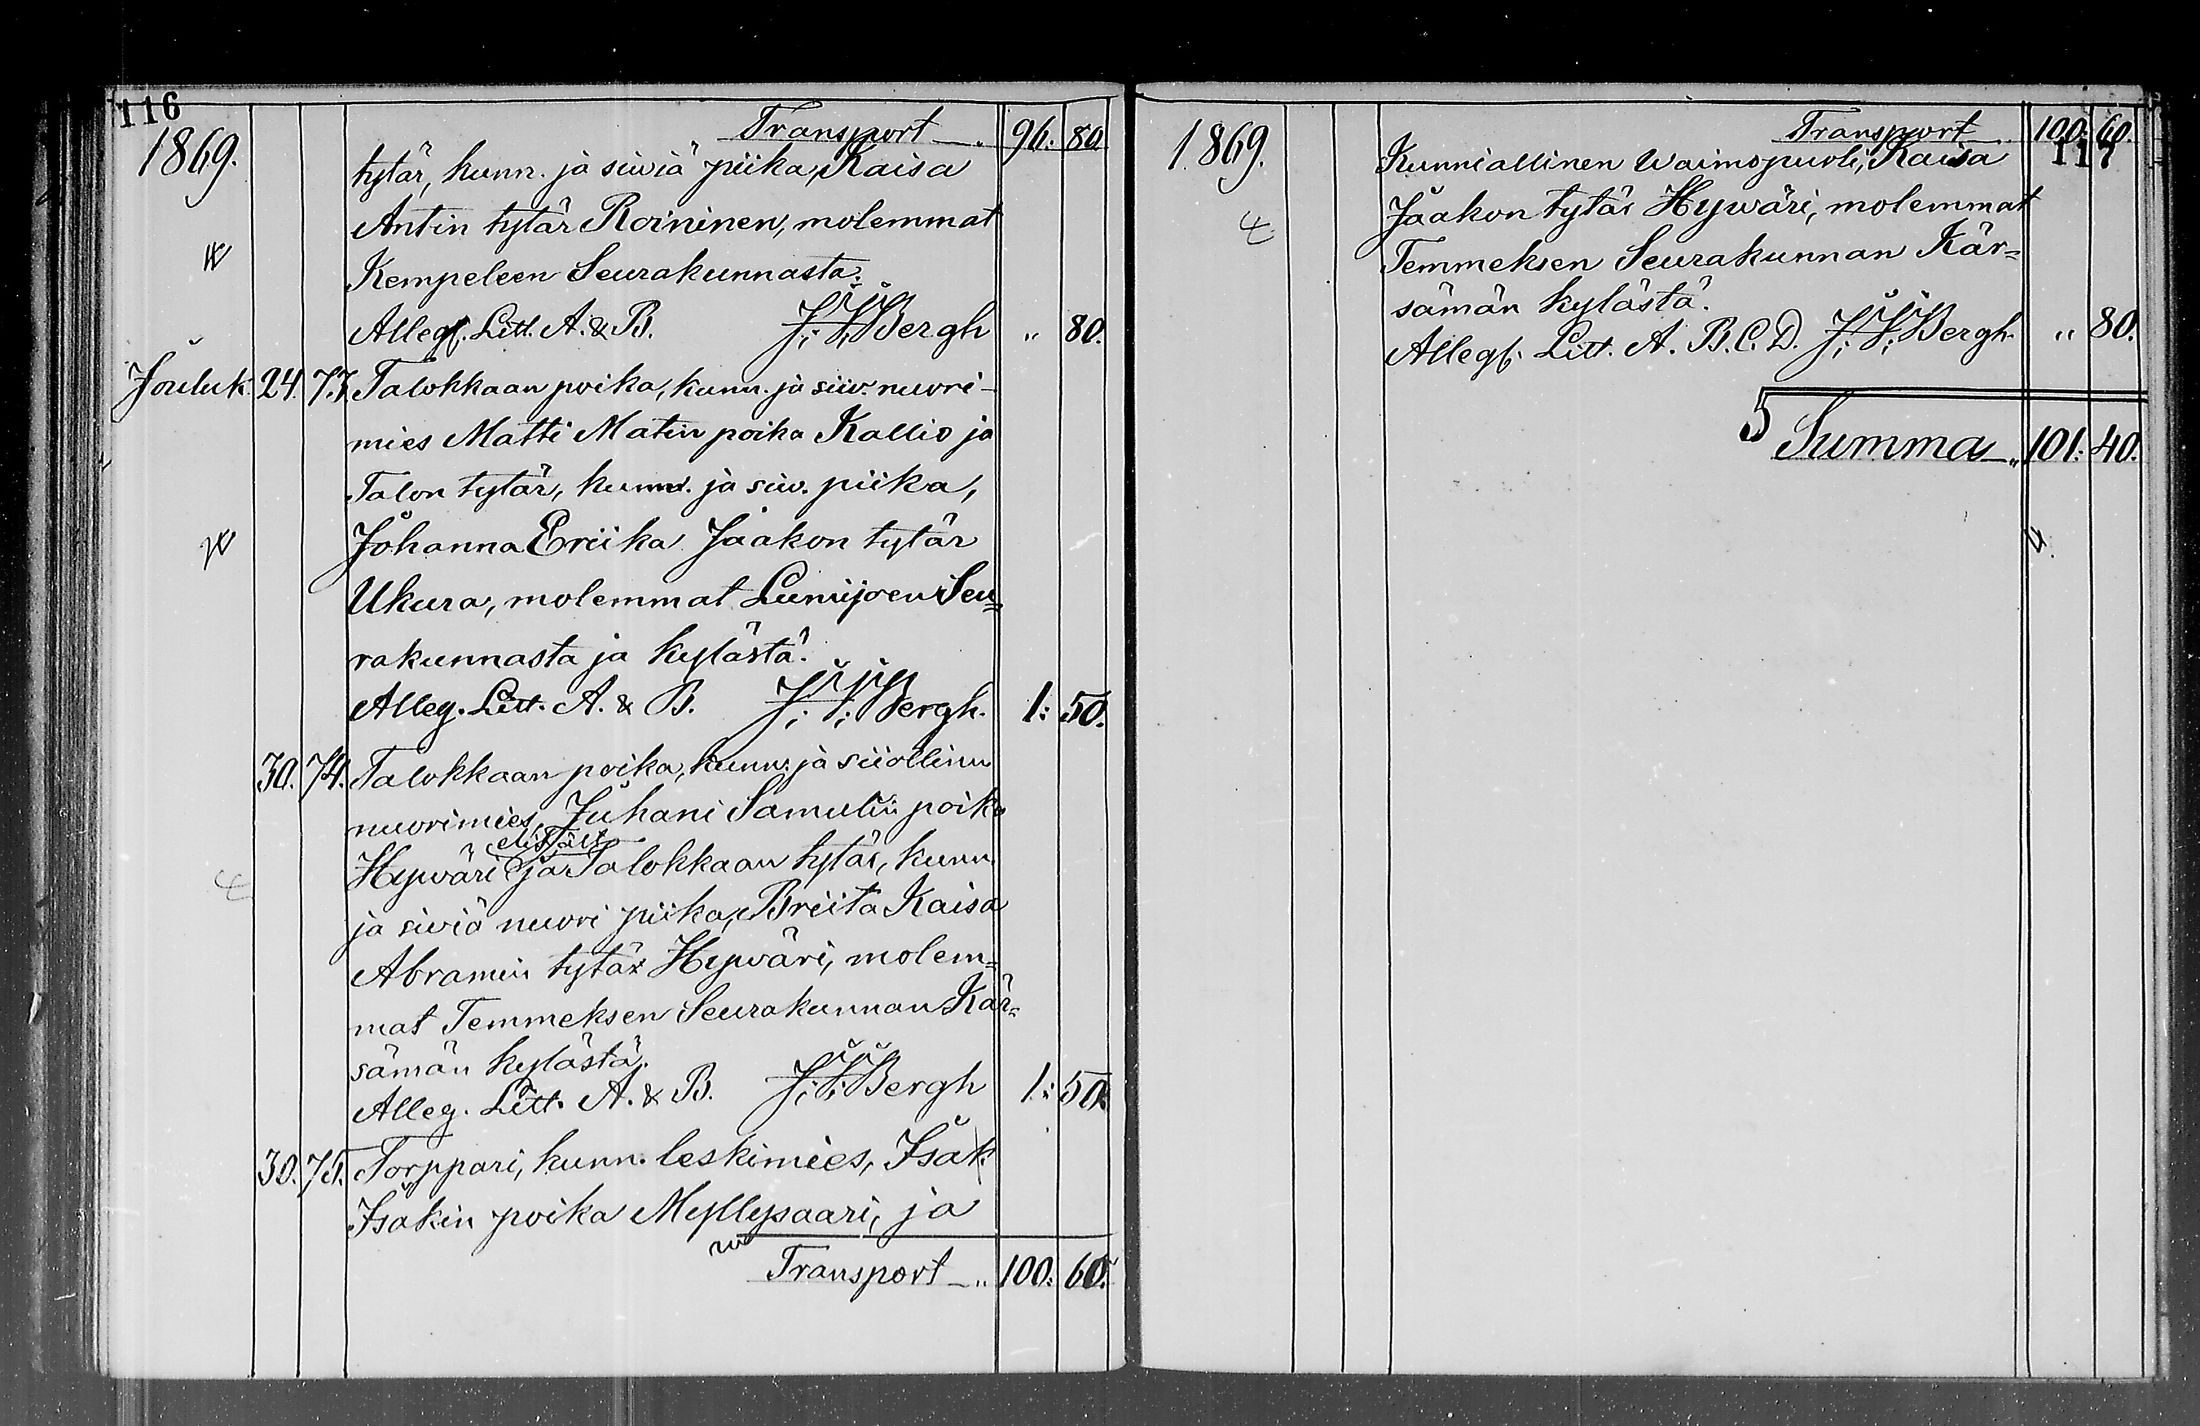 116
1869.
Transport —„ 96. 80
tytär, kunn. ja siwiä piika, Kaisa
Antin tytär Roininen, molemmat
Kempeleen Seurakunnasta.
Alleg. Litt. A. & B. J. F. Bergh „ 80.
Jouluk. 24. 73. Talokkaan poika, kunn. ja siiv. nuori-
mies Matti Matin poika Kallio ja
Talon tytär, kunn. ja siw. piika,
Johanna Eriika Jaakon tytär
Ukura, molemmat Lumijoen Seu=
rakunnasta ja kylästä.
Alleg. Litt. A. & B. J. F. Bergh. 1: 50.
30. 74. Talokkaan poika, kunn. ja siiollinn
nuorimies, Juhani Samulin poika
Hywäri ja Talokkaan tytär, kunn.
ja siviä nuori piika, Briita Kaisa
Abramin tytär Hywäri, molem=
mat Temmeksen Seurakunnan Kär=
sämän kylästä.
Alleg. Litt. A. & B. J. F. Bergh 1: 50.
30. 75. Torppari, kunn. leskimies, Isak
Isakin poika Myllysaari, ja
Transport —„ 100: 60.
117
1869.
Transport 100: 60.
Kunniallinen Waimopuoli, Kaisa
Jaakon tytär Hywäri, molemmat
Temmeksen Seurakunnan Kär=
sämän kylästä.
Alleg. Litt. A. B. C. D. J. F. Bergh. „ 80.
5 Summa —„ 101: 40.